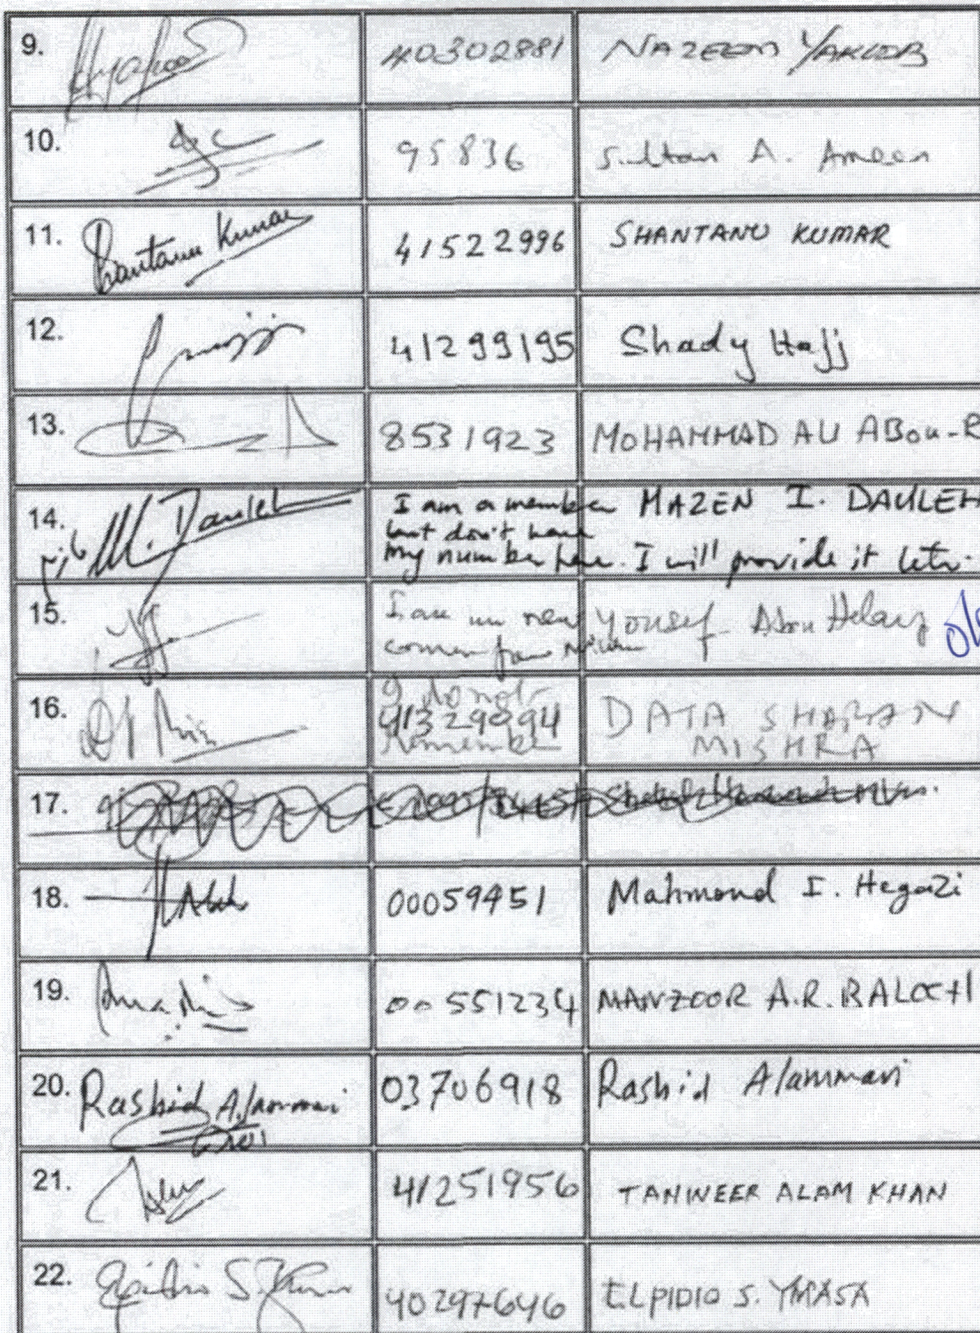 9. 40302881 NAZEEM YAKOOB
10. 95836 Sultan A. Ameen
11. Shantanu Kumar 41522996 SHANTANU KUMAR
12. 41299195 Shady Hajj
13. 8531923 MOHAMMAD ALI ABOU-R
14. M. Dauleh I am a member MAZEN I. DAULEH
but don't have
my number here. I will provide it letr.
15. I am un new Yousef Abou
comer
16. I do not
41329094 DATA SHARAN
remember MISHRA
17.
18. 00059451 Mahmoud I. Hegazi
19. 00551234 MANZOOR A.R. BALOCH
20. Rashid Alammari 03706918 Rashid Alammari
21. 41251956 TANWEER ALAM KHAN
22. 40297646 ELPIDIO S. YMASA